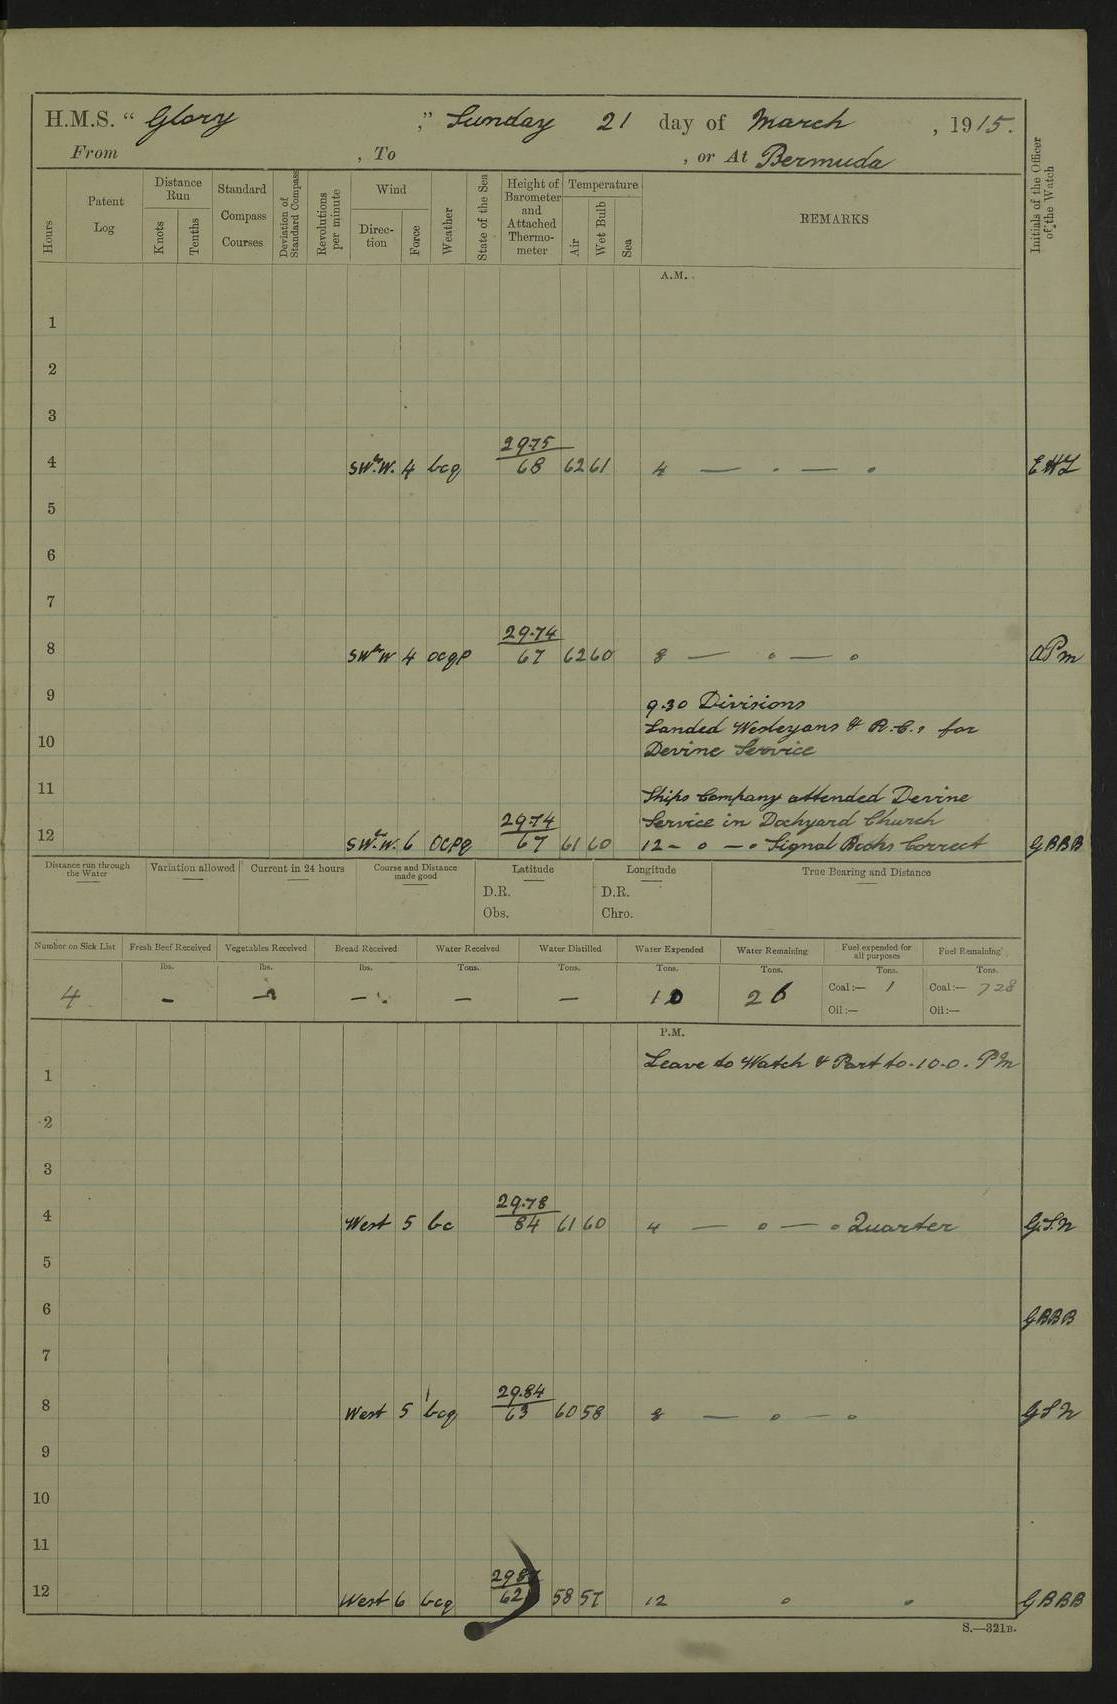 H.M.S. “ Glory ,” Sunday 21 day of March , 1915.
From , To , or At Bermuda
Hours
Patent Log
Distance Run
Knots
Tenths
Standard Compass Courses
Deviation of Standard Compass
Revolutions per minute
Wind
Direc-tion
Force
Weather
State of the Sea
Height of Barometer and Attached Thermo-meter
Temperature
Air
Wet Bulb
Sea
REMARKS
Initials of the Officer of the Watch
A.M.
1
2
3
29.75
4 SWbW. 4 bcq 68 62 61 4 — . — . EHL
5
6
7
29.74
8 SWbW 4 ocqp 67 62 60 8 — o — o APm
9
9.30 Divisions
Landed Wesleyans & R.C.s for
10 Devine Service
11 Ships Company attended Devine
29.74 Service in Dockyard Church
12 SWbW. 6 ocpq 67 61 60 12 – o – o Signal Books Correct GBBB
Distance run through the Water
Variation allowed
Current in 24 hours
Course and Distance made good
Latitude
D.R.
Obs.
Longitude
D.R.
Chro.
True Bearing and Distance
Number on Sick List Fresh Beef Received Vegetables Received Bread Received Water Received Water Distilled Water Expended Water Remaining Fuel expended for all purposes Fuel Remaining
lbs. lbs. lbs. Tons. Tons. Tons. Tons. Tons. Tons.
4 – – – – – 10 26 Coal:— 1 Coal:— 728
Oil:— Oil:—
P.M.
Leave to Watch & Part to 10.0. PM
1
2
3
29.78
4 West 5 bc 84 61 60 4 — o — o Quarter G.S.N
5
6 GBBB
7
29.84
8 West 5 bcq 63 60 58 8 — o — o GSN
9
10
11
12 West 6 bcq 62 58 57 12 o o GBBB
S.—321B.